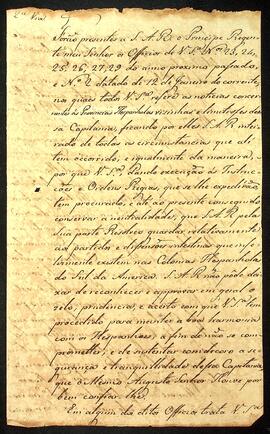 2.ª Via
Forão presentes a S. A. R. o Principe Regente
meu Senhor os Officios de V. S.ª N.os 23, 24,
25, 26, 27, 29 do anno proximo passado,
e N.º 2 datado de 12 de Janeiro do corrente,
nos quaes todos V. S.ª refere as noticias concer-
nentes ás Provincias Hespanholas vizinhas e limitrofes des-
sa Capitania, ficando por elles S. A. R. intei-
rado de todas as circunstancias que ali
tem occorrido, e igualmente da maneira,
por que V. S.ª, dando execução ás Instruc-
ções e Ordens Regias, que se lhe expedirão,
tem procurado, e até ao presente conseguido
conservar a neutralidade, que S. A. R. pela
sua parte Resolveo guardar, relativamente
ao partido, e dissensões intestinas que infe-
lizmente existem nas Colonias Hespanholas
do Sul da America. S. A. R. não póde dei-
xar de reconhecer e approvar em geral o
zelo, prudencia, e acerto com que V. S.ª tem
procedido para manter a boa harmonia
com os Hespanhoes, a fim de não se com-
prometter, e de sustentar com decoro a se-
gurança e tranquillidade dessa Capitania,
que o Mesmo Augusto Senhor Houve por
bem confiar-lhe.
Em algum dos ditos Officios trata V. S.ª